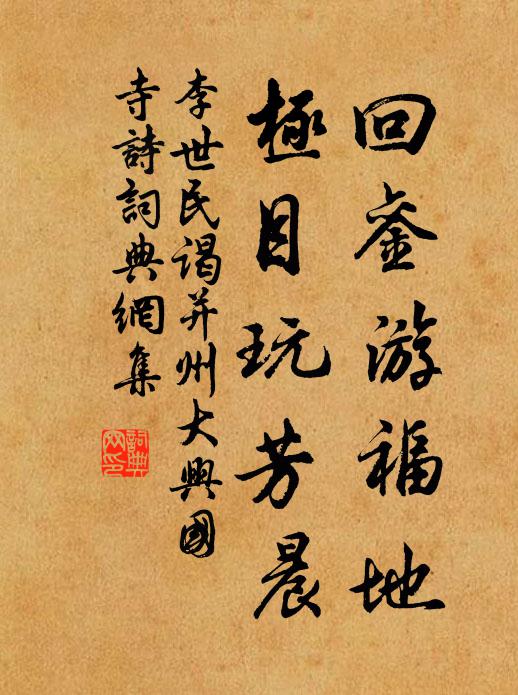 回銮游福地
極目玩芳晨
李世民谒并州大興國
寺詩詞典網集
詞典网印